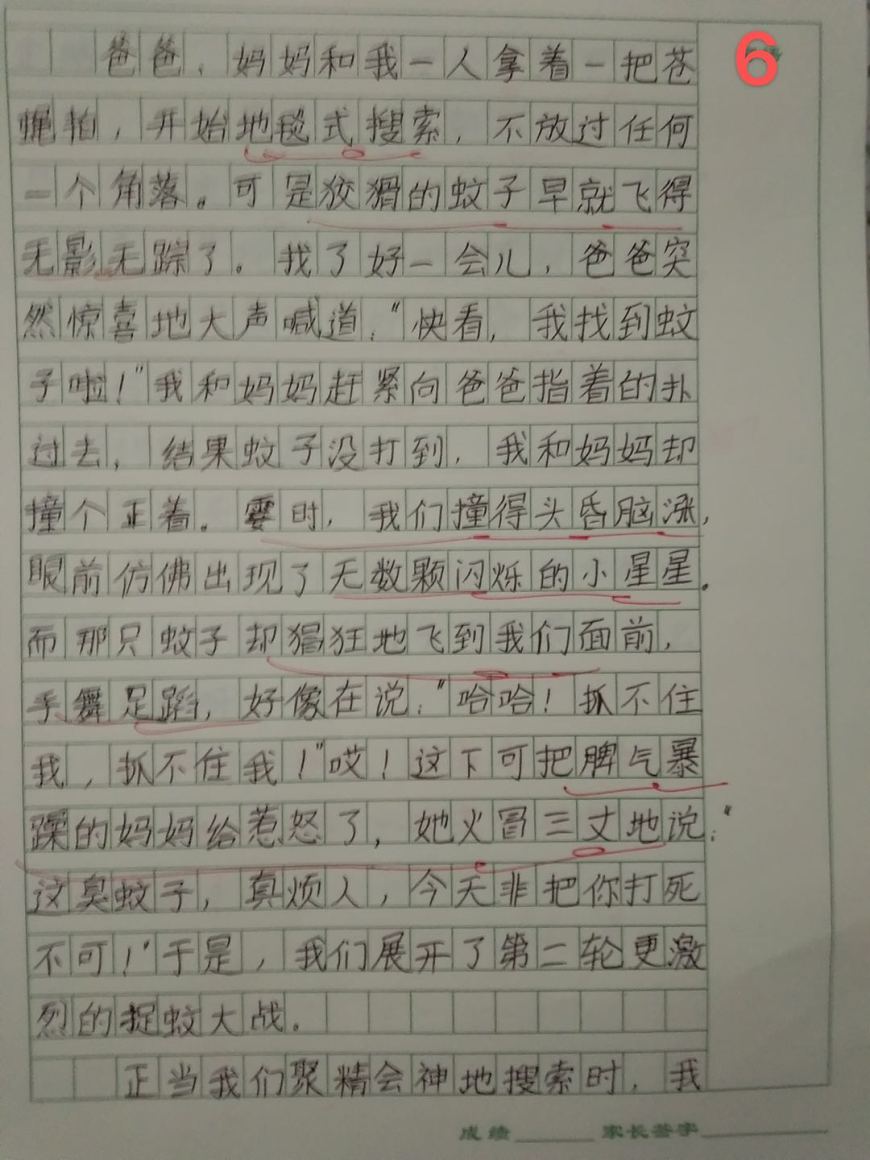 6
爸爸、妈妈和我一人拿着一把苍
蝇拍，开始地毯式搜索，不放过任何
一个角落。可是狡猾的蚊子早就飞得
无影无踪了。我了好一会儿，爸爸突
然惊喜地大声喊道：“快看，我找到蚊
子啦！”我和妈妈赶紧向爸爸指着的扑
过去，结果蚊子没打到，我和妈妈却
撞个正着。霎时，我们撞得头昏脑涨，
眼前仿佛出现了无数颗闪烁的小星星。
而那只蚊子却猖狂地飞到我们面前，
手舞足蹈，好像在说：“哈哈！抓不住
我，抓不住我！”哎！这下可把脾气暴
躁的妈妈给惹怒了，她火冒三丈地说：“
这臭蚊子，真烦人，今天非把你打死
不可！”于是，我们展开了第二轮更激
烈的捉蚊大战。
正当我们聚精会神地搜索时，我
成绩______ 家长签字__________